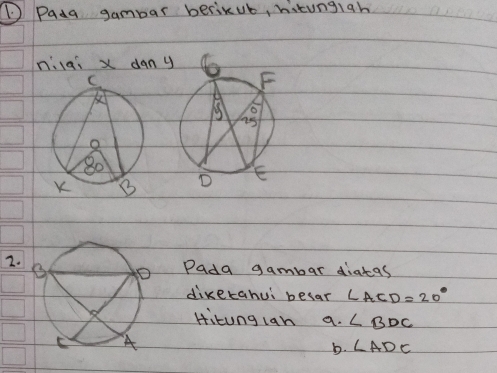 1. Pada gambar berikut, hitunglah
nilai x dan y
C G F
x y 250
O
80
K B D E
2. B D Pada gambar diatas
diketahui besar ∠ACD = 20°
Hitunglah a. ∠BDC
C A b. ∠ADC